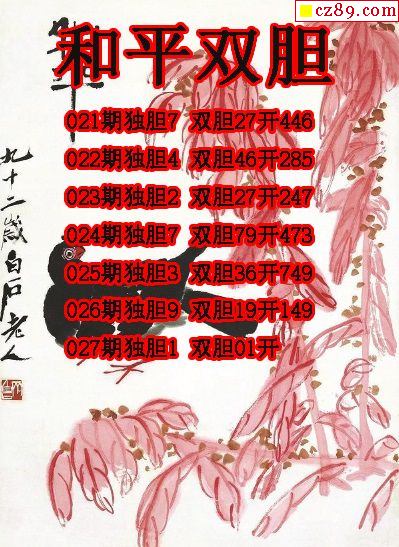 cz89.com
和平双胆
021期独胆7 双胆27开446
022期独胆4 双胆46开285
023期独胆2 双胆27开247
024期独胆7 双胆79开473
025期独胆3 双胆36开749
026期独胆9 双胆19开149
027期独胆1 双胆01开
九十二岁白石老人